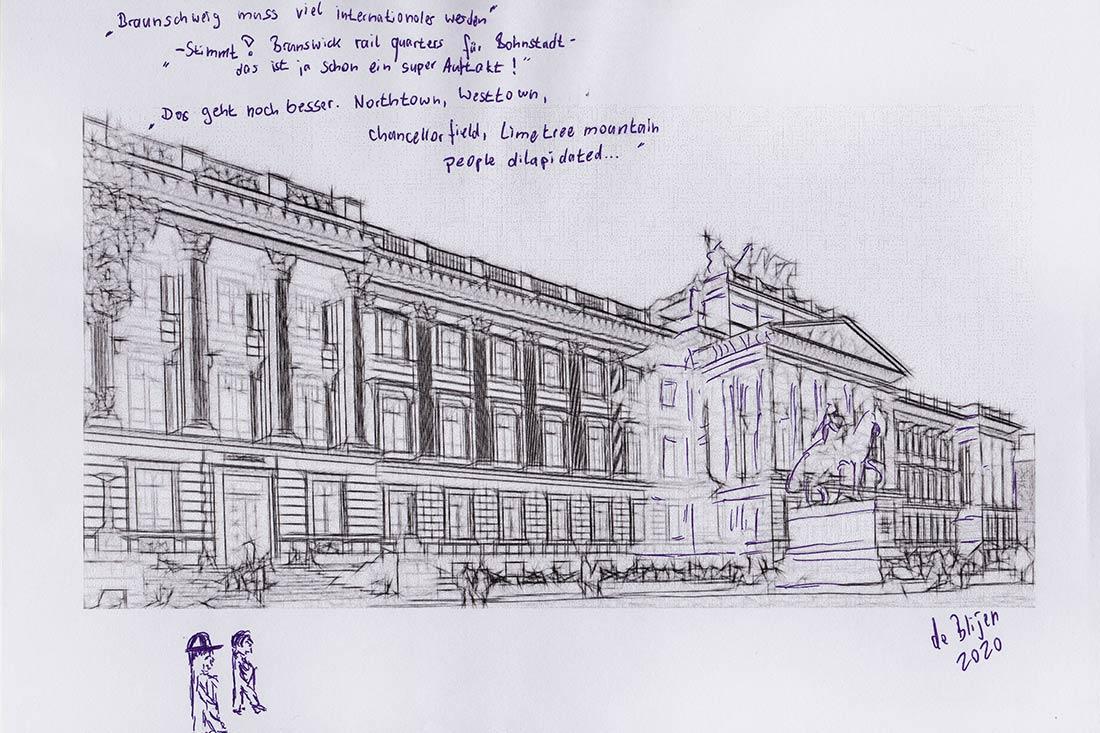 „Braunschweig muss viel internationaler werden“
-Stimmt! Brunswick rail quarters für Bohnstadt-
„das ist ja schon ein super Auftakt!“
„Das geht noch besser. Northtown, Westtown,
Chancellorfield, Limetree mountain
people dilapidated...“
de Blijen
2020